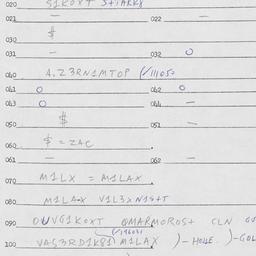 020 S1KOXT STARK8
021 — 022 —
030 $
031 — 032 O
040 A.Z3RN1MTOP (/11105-
041 O 042 O
043 O 044 —
050 $ 051 —
060 $ = ZAC
061 — 062 —
070 M1LX = M1LAX
080 M1LAX V1L3XN1S+T
090 OUVG1KOXT QMARMOROS+ CLN
100 VAS3RD1K81 M1LAX )- HOLE. )-GOL